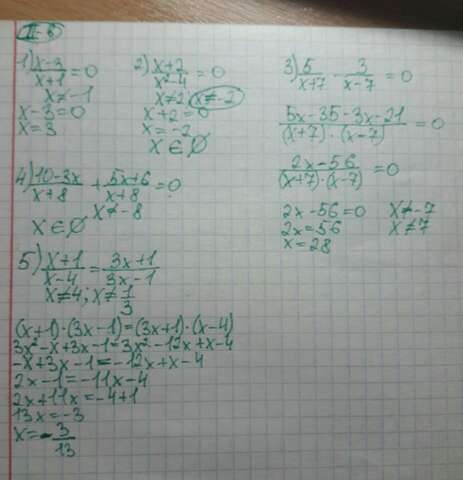 II-B
1) (x-3)/(x+1) = 0
x ≠ -1
x-3=0
x=3
2) (x+2)/(x²-4) = 0
x≠2; x≠-2
x+2=0
x=-2
x ∈ ∅
3) 5/(x+7) - 3/(x-7) = 0
(5x-35-3x-21)/((x+7)·(x-7)) = 0
(2x-56)/((x+7)·(x-7)) = 0
2x-56=0 x≠-7
2x=56 x≠7
x=28
4) (10-3x)/(x+8) + (5x+6)/(x+8) = 0
x≠-8
x ∈ ∅
5) (x+1)/(x-4) = (3x+1)/(3x-1)
x≠4; x≠1/3
(x+1)·(3x-1)=(3x+1)·(x-4)
3x²-x+3x-1=3x²-12x+x-4
-x+3x-1=-12x+x-4
2x-1=-11x-4
2x+11x=-4+1
13x=-3
x=-3/13